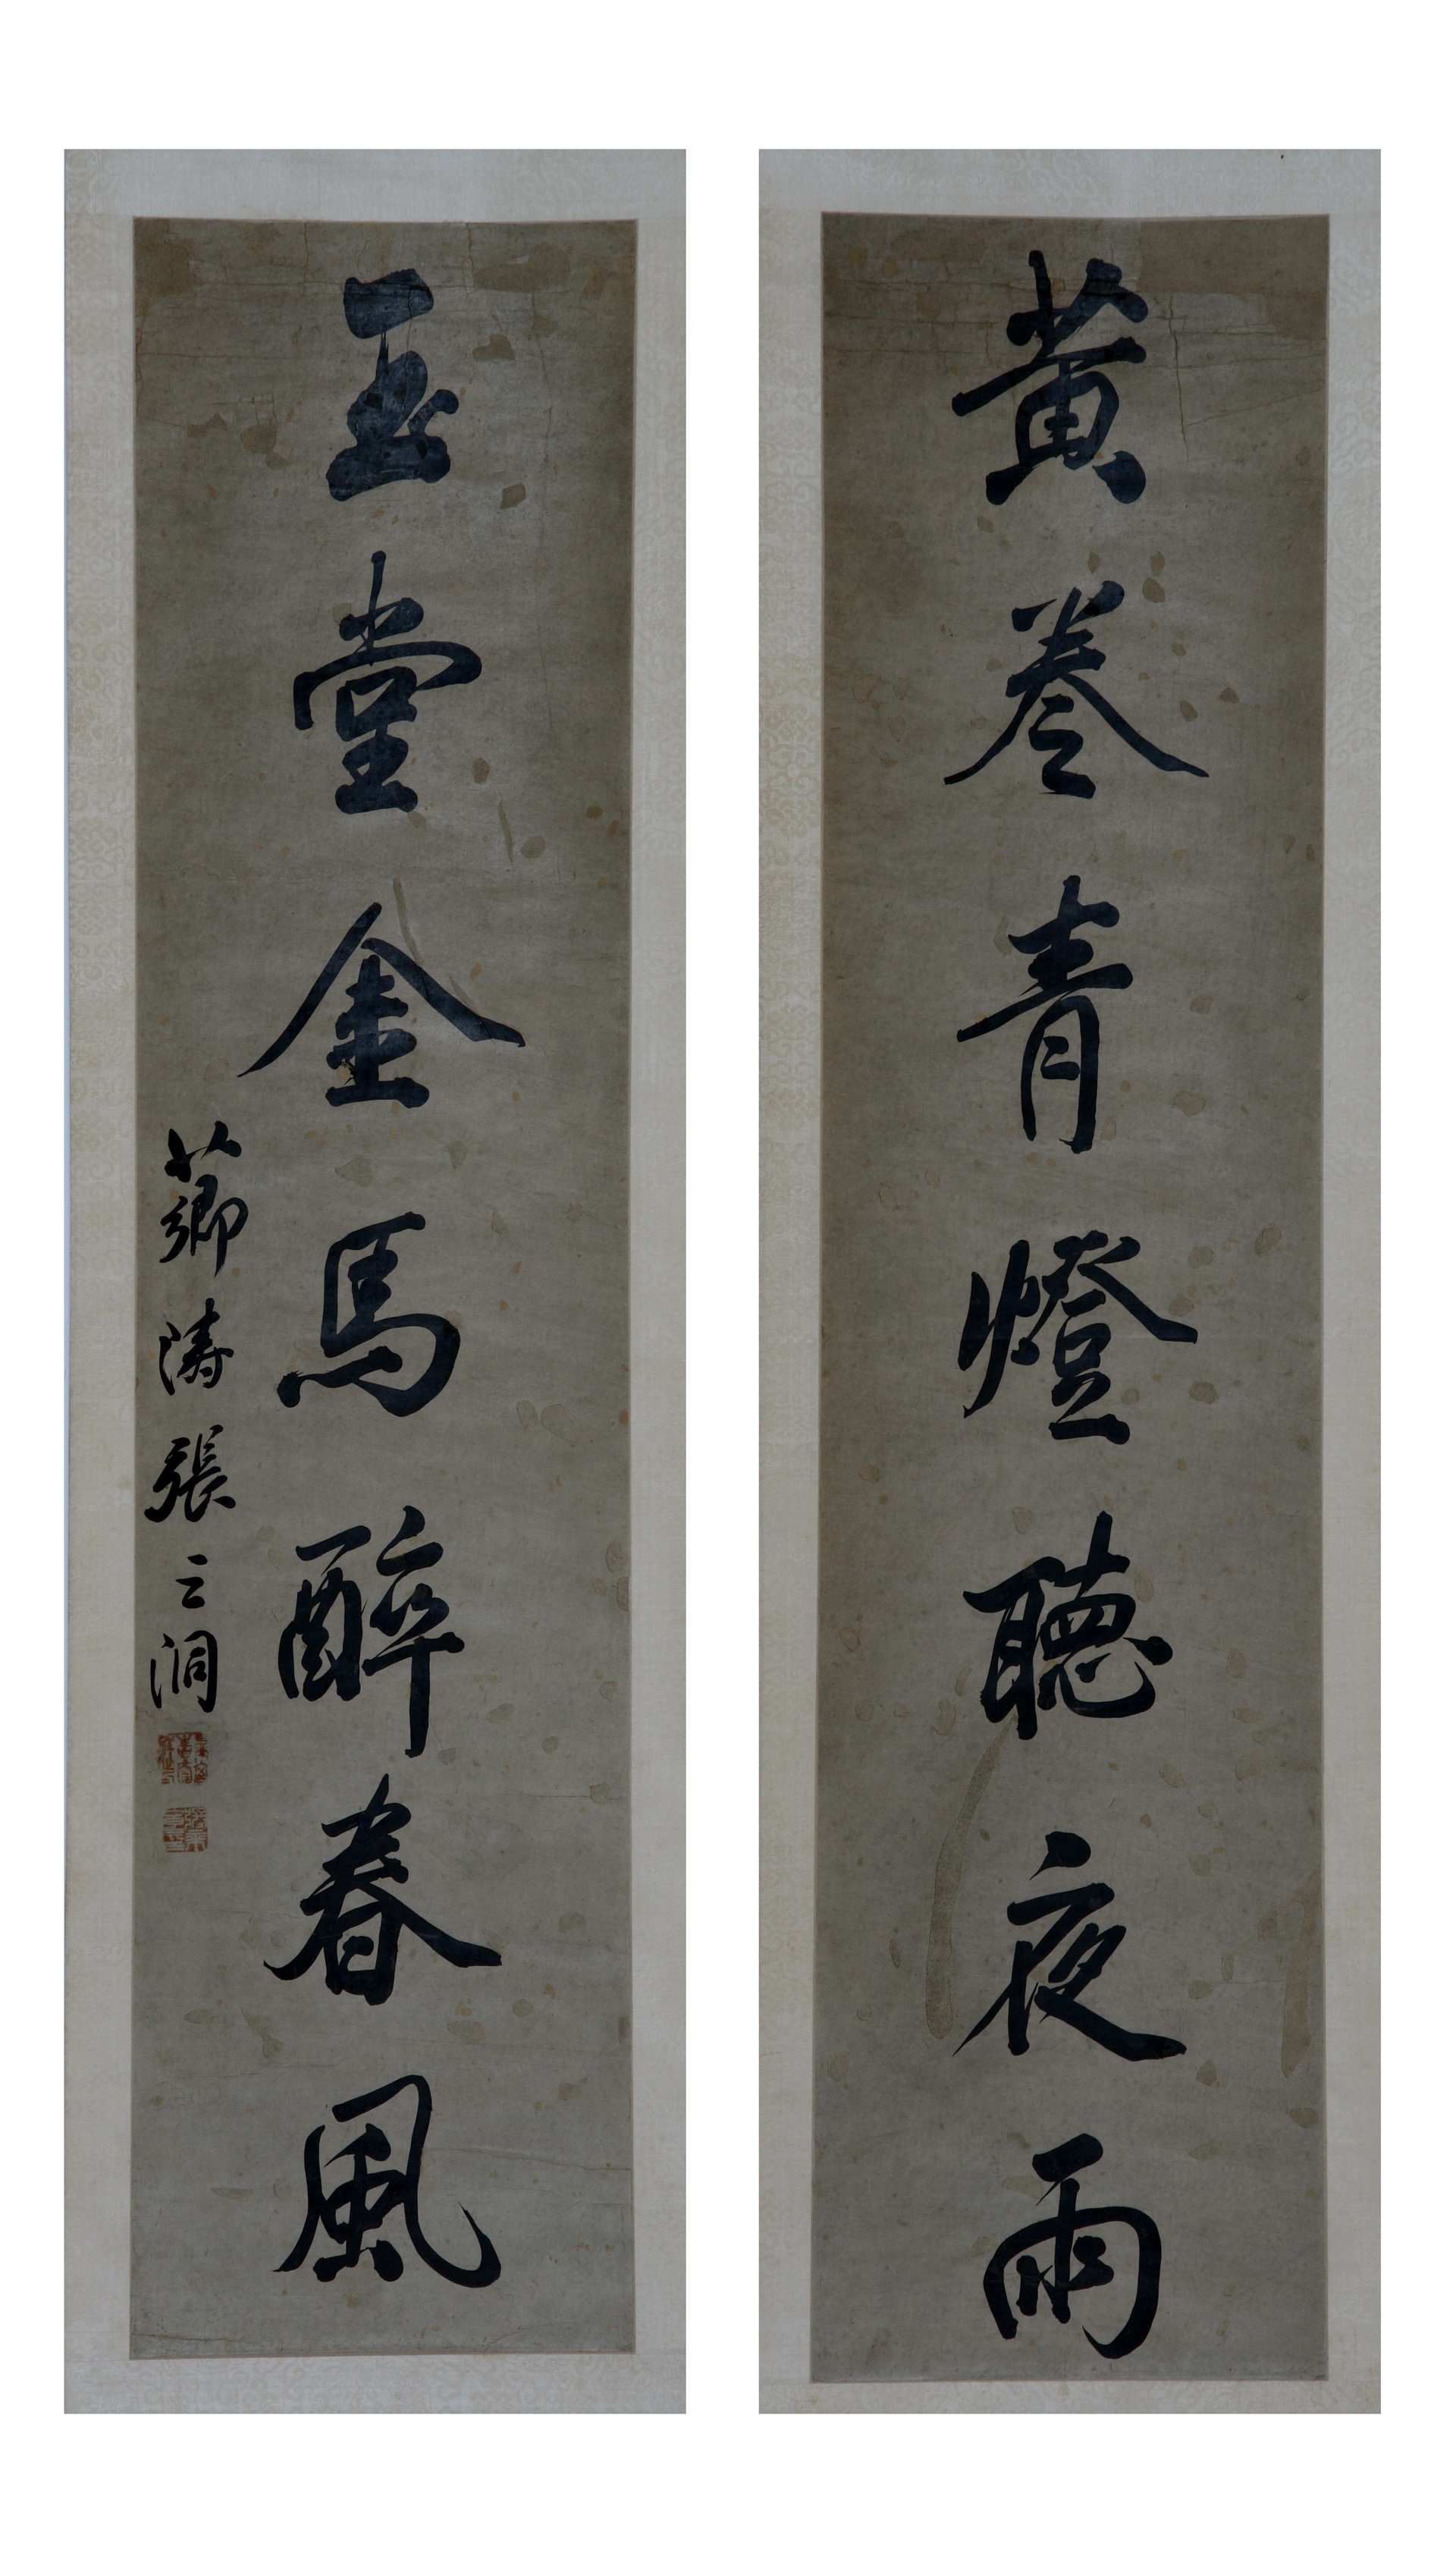 黃卷青燈聽夜雨
玉堂金馬醉春風
薌濤張之洞